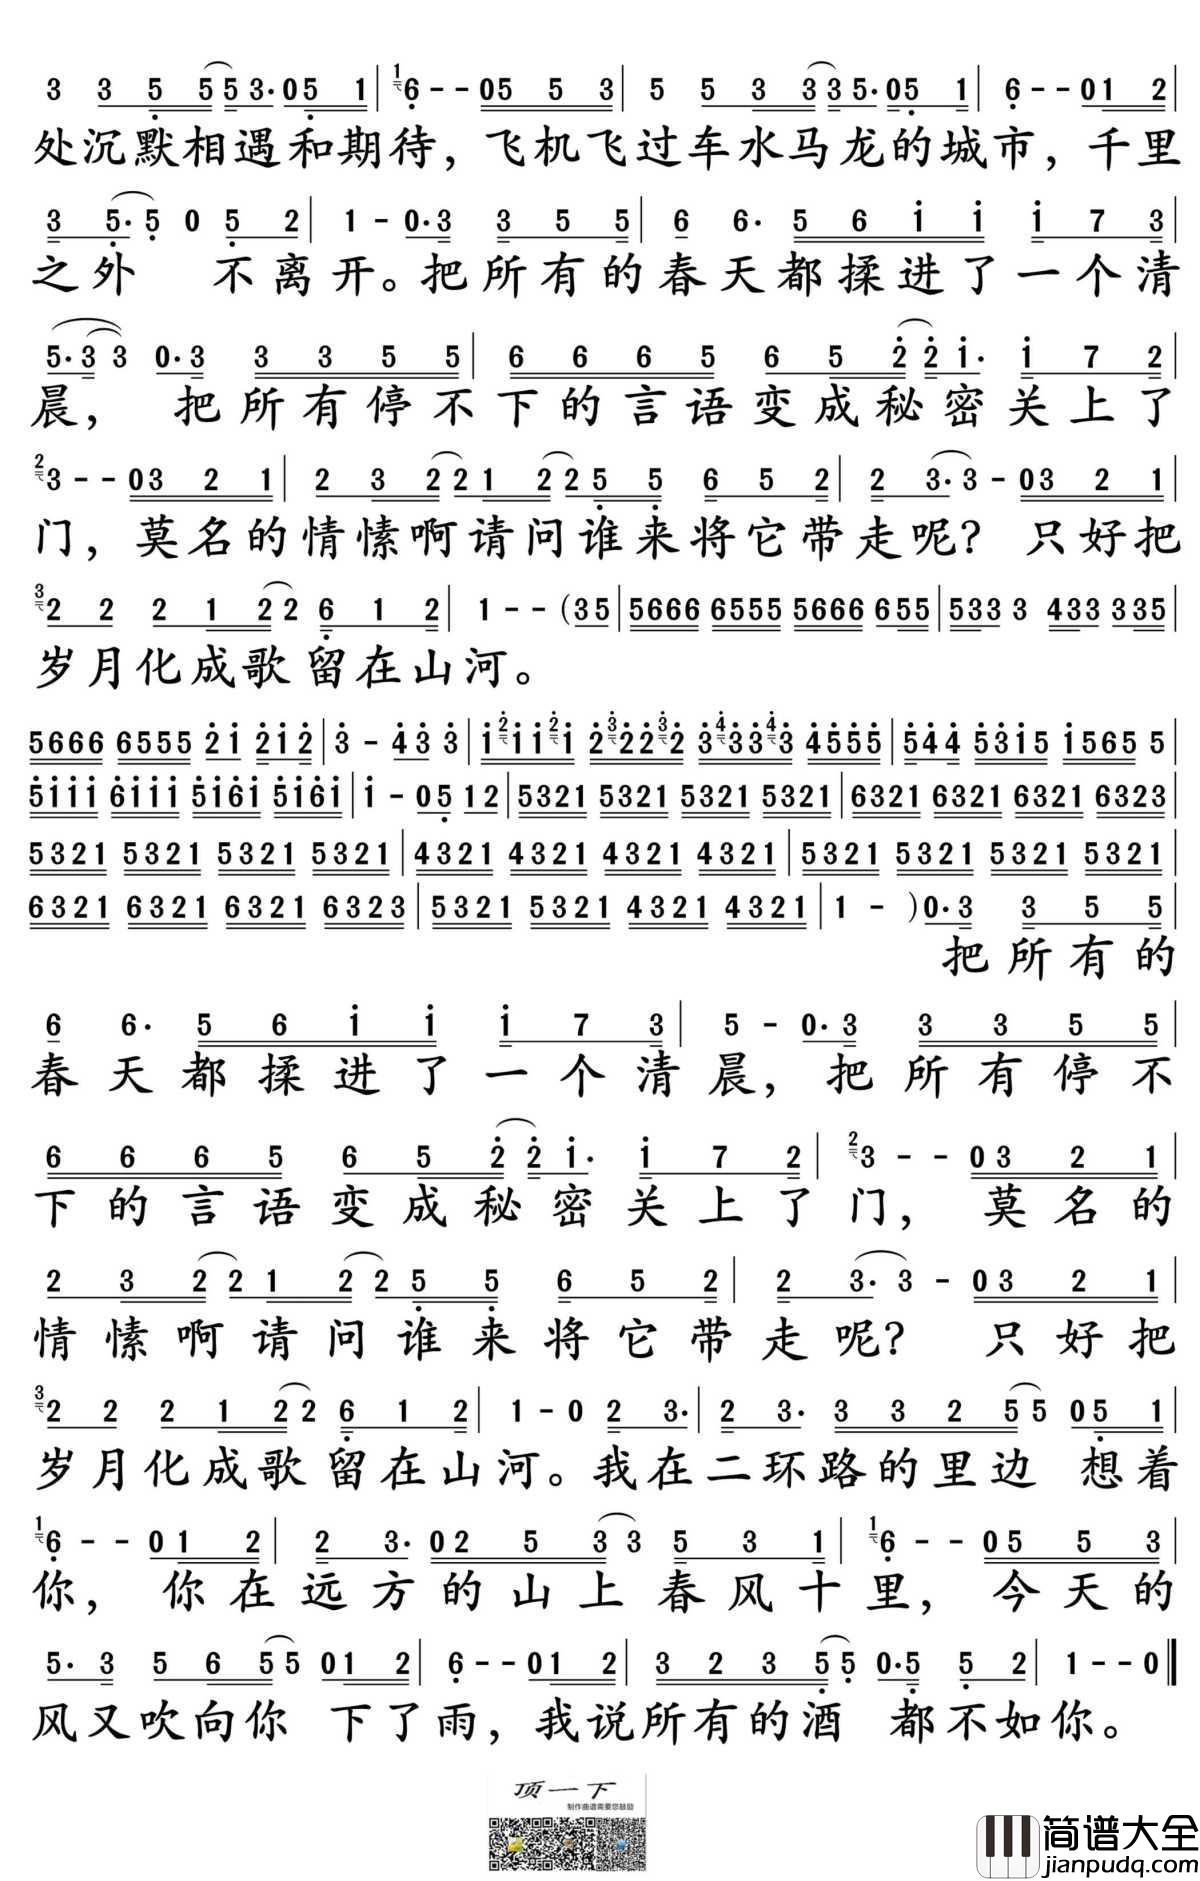 3 3 5 5 5 3· 0 5 1 | 1 6 - - 0 5 5 5 3 | 5 5 3 3 3 5· 0 5 1 | 6 - - 0 1 2 |
处沉默相遇和期待，飞机飞过车水马龙的城市，千里
3 5· 5 0 5 2 | 1 - 0· 3 3 5 5 | 6 6· 5 6 1 1 1 7 3 |
之外 不离开。把所有的春天都揉进了一个清
5· 3 3 0· 3 3 3 5 5 | 6 6 6 5 6 5 2 2 1· 1 7 2 |
晨， 把所有停不下的言语变成秘密关上了
2 3 - - 0 3 2 1 | 2 3 2 2 1 2 2 5 5 6 5 2 | 2 3· 3 - 0 3 2 1 |
门，莫名的情愫啊请问谁来将它带走呢？ 只好把
3 2 2 2 1 2 2 6 1 2 | 1 - - (3 5 | 5666 6555 5666 655 | 533 3 433 335 |
岁月化成歌留在山河。
5666 6555 21 212 | 3 - 43 3 | 1 2 1 1 2 1 2 3 2 2 3 2 3 4 3 3 4 3 4555 | 544 5315 1565 5
5111 6111 5161 5161 | 1 - 05 12 | 5321 5321 5321 5321 | 6321 6321 6321 6323 |
5321 5321 5321 5321 | 4321 4321 4321 4321 | 5321 5321 5321 5321 |
6321 6321 6321 6323 | 5321 5321 4321 4321 | 1 - ) 0· 3 3 5 5 |
把所有的
6 6· 5 6 1 1 1 7 3 | 5 - 0· 3 3 3 5 5 |
春天都揉进了一个清晨，把所有停不
6 6 6 5 6 5 2 2 1· 1 7 2 | 2 3 - - 0 3 2 1 |
下的言语变成秘密关上了门，莫名的
2 3 2 2 1 2 2 5 5 6 5 2 | 2 3· 3 - 0 3 2 1 |
情愫啊请问谁来将它带走呢？ 只好把
3 2 2 2 1 2 2 6 1 2 | 1 - 0 2 3· | 2 3· 3 3 2 5 5 0 5 1 |
岁月化成歌留在山河。我在二环路的里边 想着
1 6 - - 0 1 2 | 2 3· 0 2 5 3 3 5 3 1 | 1 6 - - 0 5 5 3 |
你，你在远方的山上春风十里，今天的
5· 3 5 6 5 5 0 1 2 | 6 - - 0 1 2 | 3 2 3 5 5 0· 5 5 2 | 1 - - 0 ‖
风又吹向你 下了雨，我说所有的酒 都不如你。
顶一下
制作曲谱需要您鼓励
简谱大全
jianpudq.com